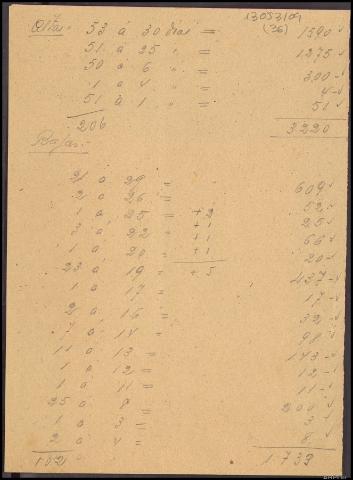 13053/09
(36)
Altas: 53 á 30 dias = 1590
51 á 25 " = 1275
50 á 6 " = 300
1 á 4 " = 4
51 á 1 " = 51
206 3220
Bajas:
21 á 29 = 609
2 á 26 = 52
1 á 25 = +2 25
3 á 22 = +1 66
1 á 20 = +1 20
23 á 19 = +5 437
1 á 17 = 17
2 á 16 = 32
7 á 14 = 98
11 á 13 = 143
1 á 12 = 12
1 á 11 = 11
25 á 8 = 200
1 á 3 = 3
2 á 4 = 8
102 1.733